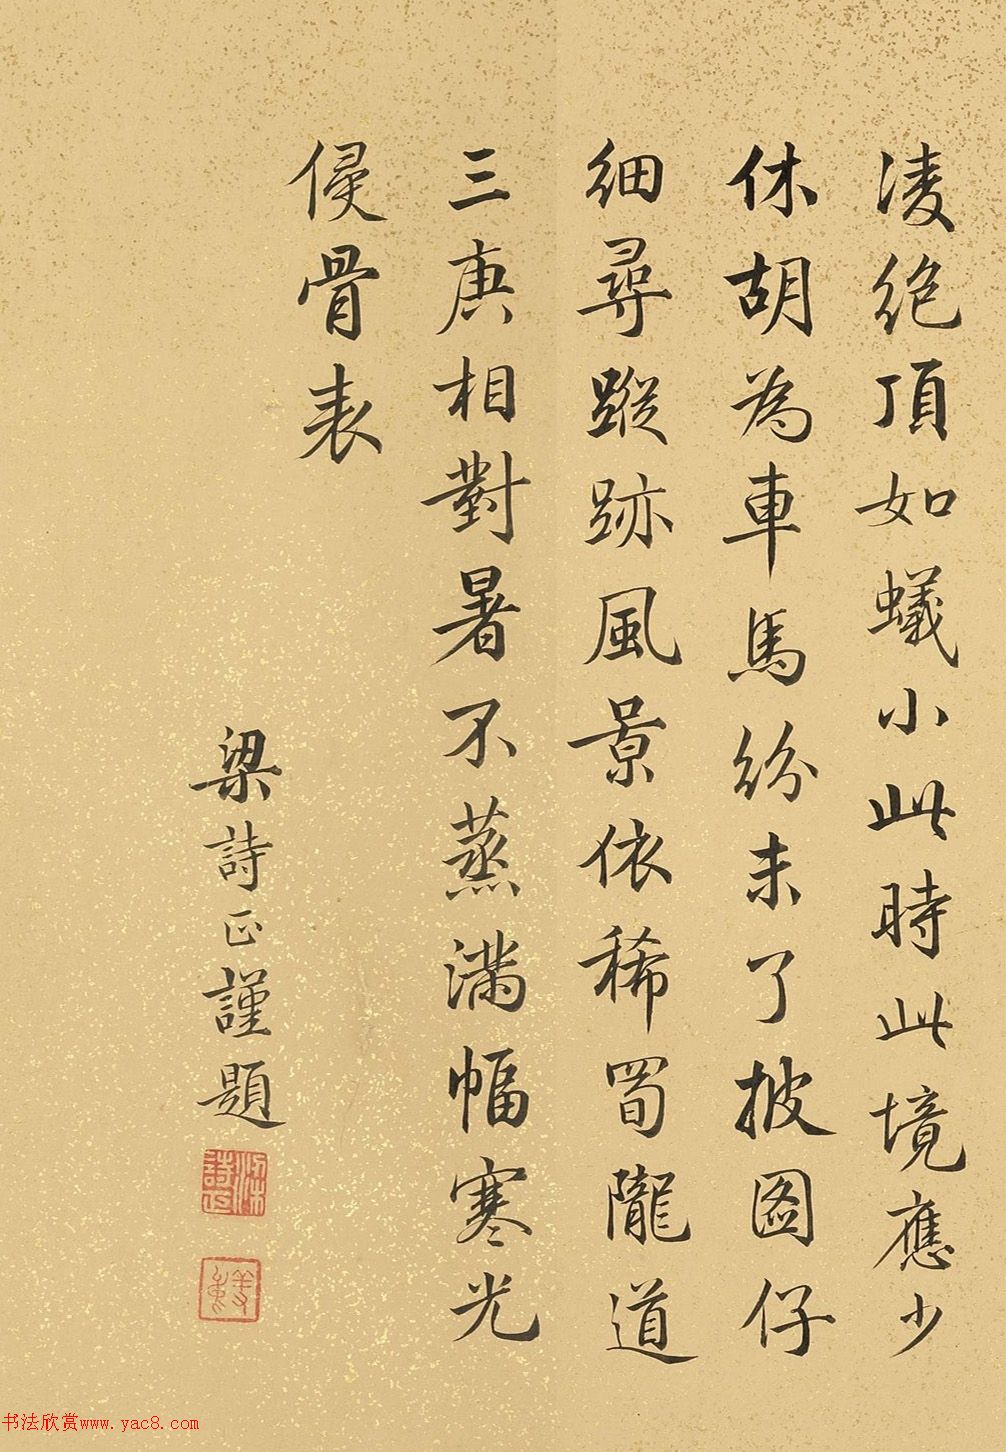 凌絕頂如蟻小此時此境應少
休胡為車馬紛未了披圖仔
細尋蹤跡風景依稀蜀隴道
三庚相對暑不蒸滿幅寒光
侵骨表
梁詩正謹題
梁詩正
书法欣赏www.yac8.com